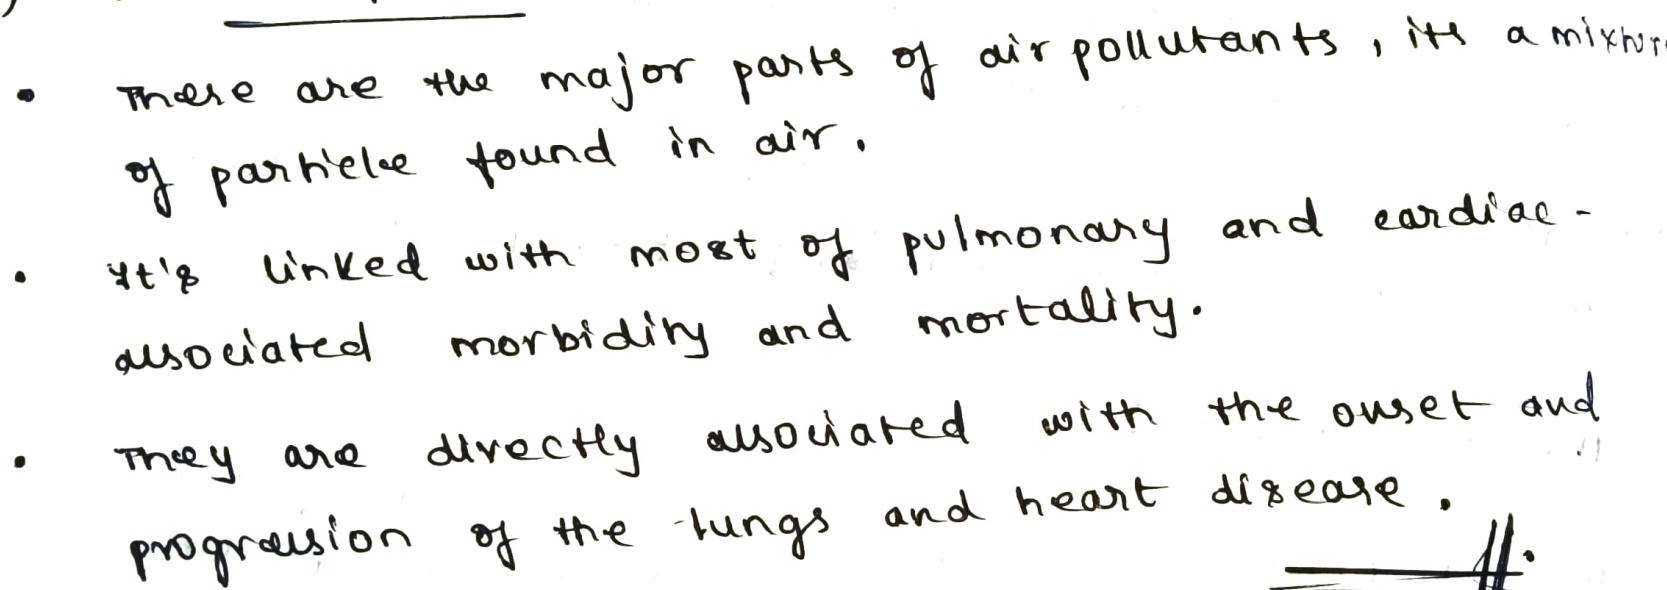 • These are the major parts of air pollutants, its a mixture
of particle found in air.
• It's linked with most of pulmonary and cardiac-
associated morbidity and mortality.
• They are directly associated with the onset and
progression of the lungs and heart disease.